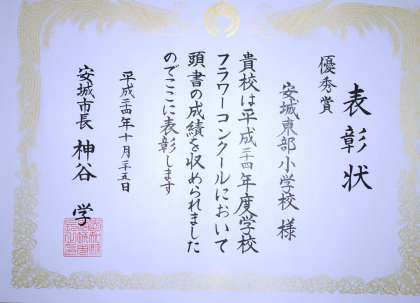 表彰状
優秀賞
安城東部小学校 様
貴校は平成二十四年度学校
フラワーコンクールにおいて
頭書の成績を収められました
のでここに表彰します
平成二十四年十月二十五日
安城市長 神谷 学